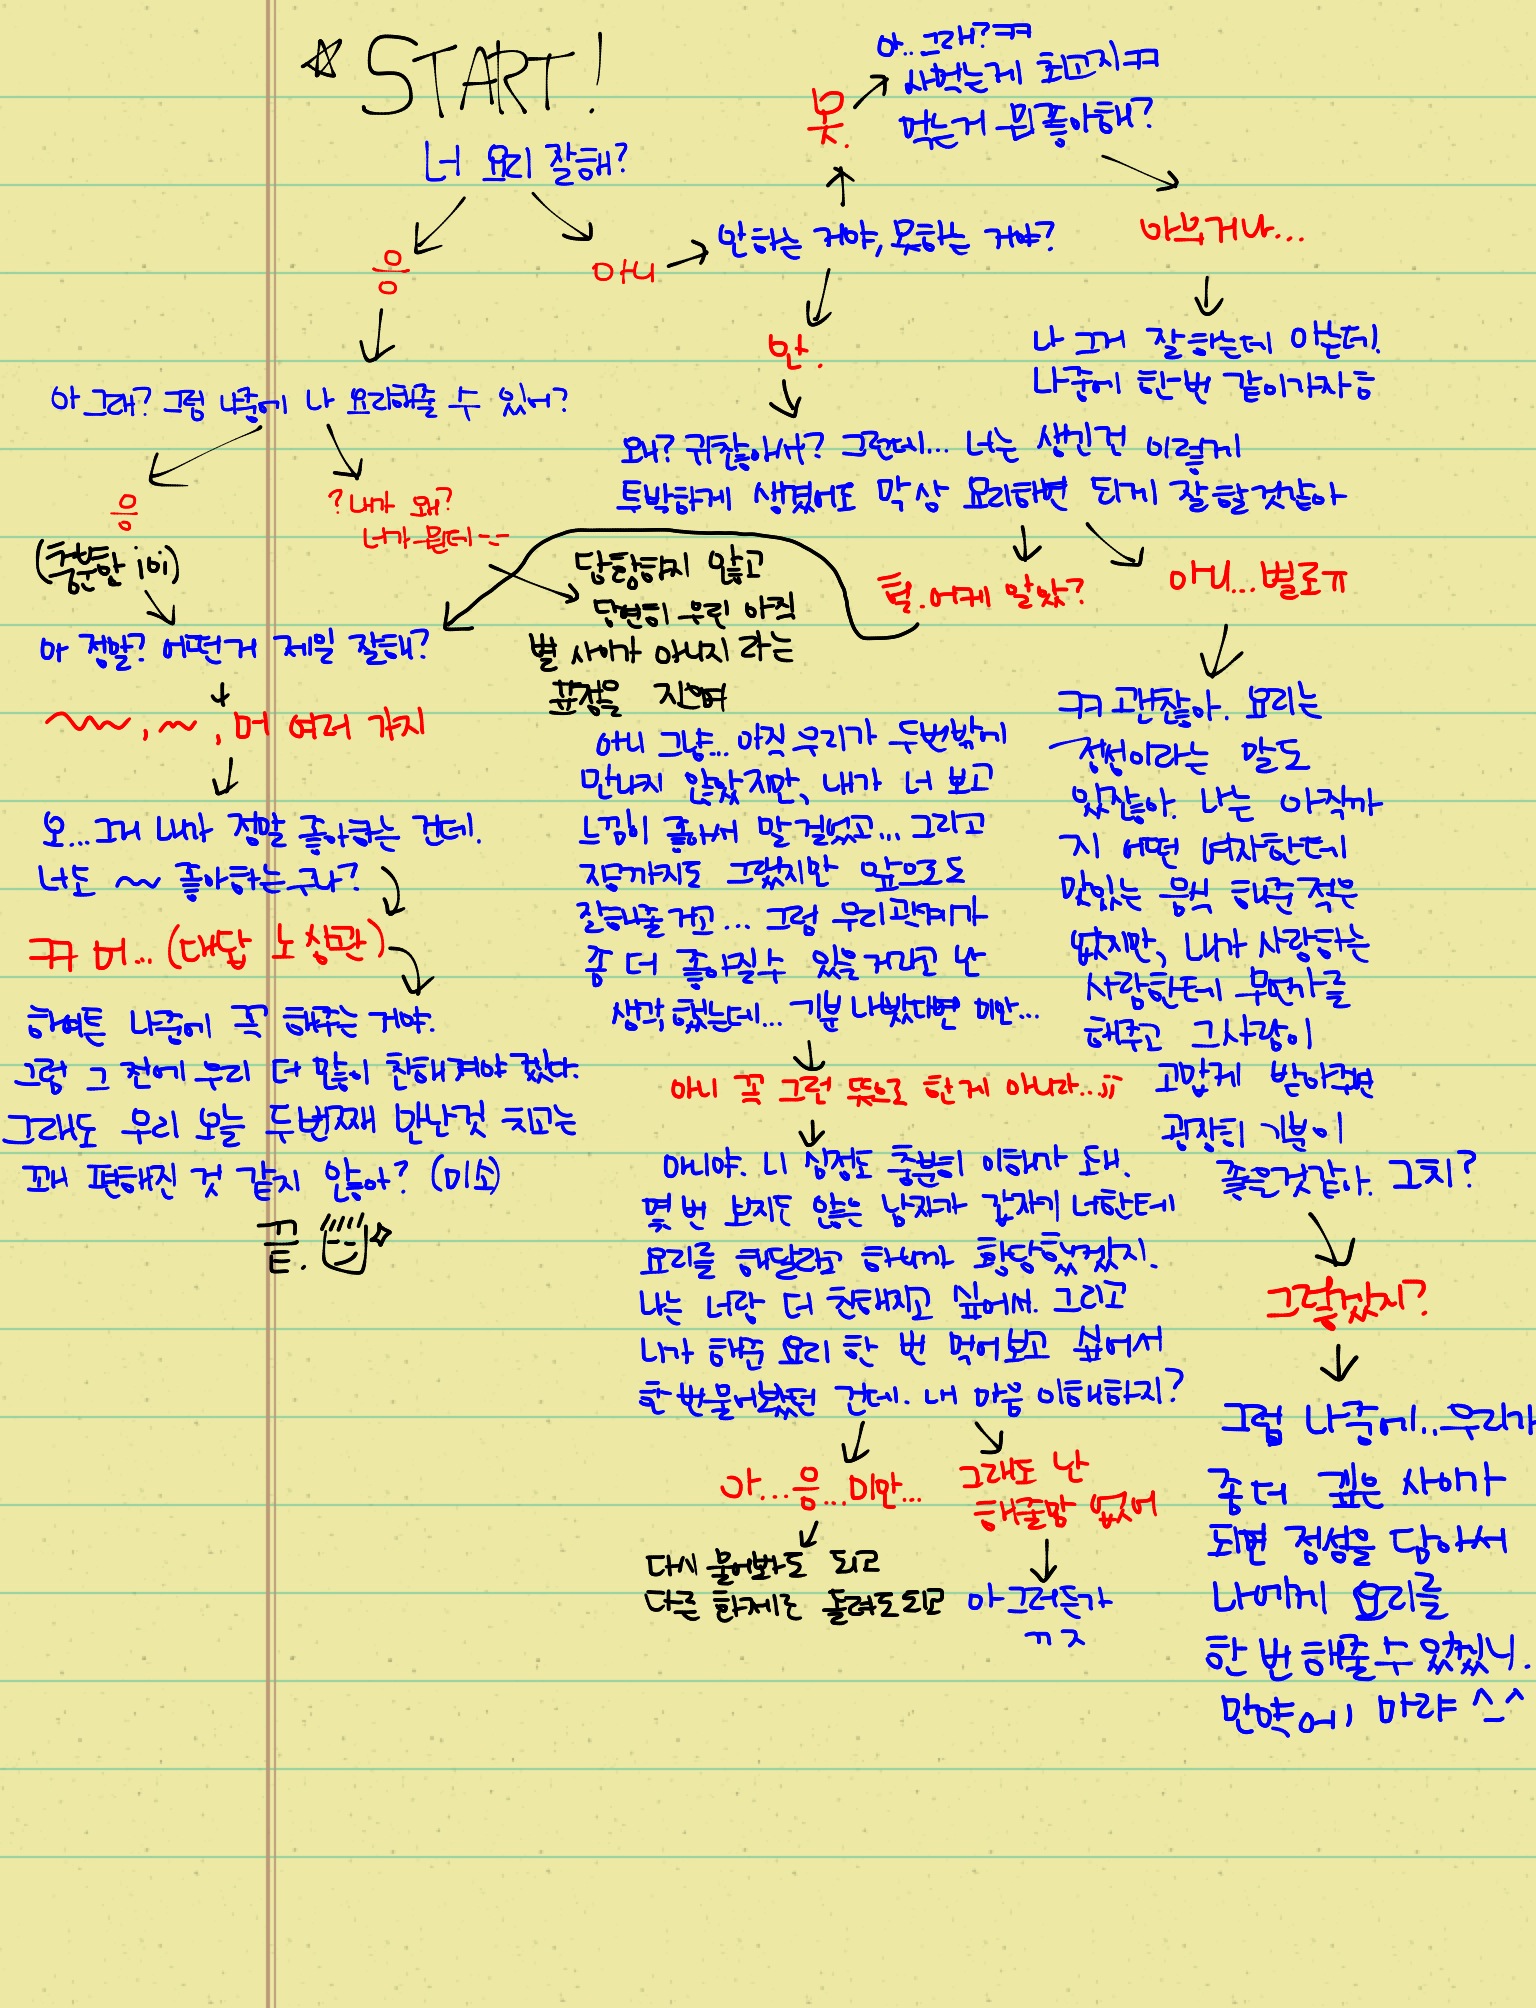 START!
너 요리 잘해?
응
아니
안하는 거야, 못하는 거야?
못.
아..그래?ㅋㅋ
사먹는게 최고지ㅋㅋ
먹는거 뭐좋아해?
아무거나...
나 그거 잘하는데 아는데!
나중에 한번 같이가자ㅎ
안.
왜? 귀찮아서? 그런데... 너는 생긴건 이렇게
투박하게 생겼어도 막상 요리하면 되게 잘할것같아
헐.어케 알았?
아니...별로ㅠ
ㅋㅋ괜찮아. 요리는
정성이라는 말도
있잖아. 나는 아직까
지 어떤 여자한테
맛있는 음식 해준적은
없지만, 내가 사랑하는
사람한테 무언가를
해주고 그사람이
고맙게 받아주면
굉장히 기분이
좋을것같아. 그치?
그렇겠지?
그럼 나중에..우리가
좀더 깊은 사이가
되면 정성을 담아서
나에게 요리를
한번해줄수있겠니.
만약에 마랴^_^
아 그래? 그럼 나중에 나 요리해줄 수 있어?
응
(충분함 ibi)
?내가 왜?
너가 뭔데--
당황하지 않고
당연히 우린 아직
별 사이가 아니지 라는
표정을 지으며
아니 그냥... 아직 우리가 두번밖에
만나지 않았지만, 내가 너 보고
느낌이 좋아서 말걸었고... 그리고
지금까지도 그랬지만 앞으로도
잘해줄거고... 그럼 우리관계가
좀 더 좋아질수 있을거라고 난
생각했는데... 기분 나빴다면 미안...
아니 꼭 그런 뜻으로 한게 아니라...;;
아니야. 니 심정도 충분히 이해가 돼.
몇 번 보지도 않은 남자가 갑자기 너한테
요리를 해달라고 하니까 황당했겠지.
나는 너랑 더 친해지고 싶어서. 그리고
너가 해준 요리 한 번 먹어보고 싶어서
한번물어봤던 건데. 내 마음 이해하지?
아...응...미안...
다시 물어봐도 되고
다른 화제로 돌려도되고
그래도 난
해줄맘 없어
아그러든가
ㄲㅈ
아 정말? 어떤거 제일 잘해?
~~~, ~~, 머 여러 가지
오...그거 내가 정말 좋아하는 건데.
너도 ~~ 좋아하는구나?
ㅋㅋ 머...(대답 노상관)
하여튼 나중에 꼭 해주는 거야.
그럼 그 전에 우리 더 많이 친해져야겠다.
그래도 우리 오늘 두번째 만난것 치고는
꽤 편해진 것 같지 않아? (미소)
끝.